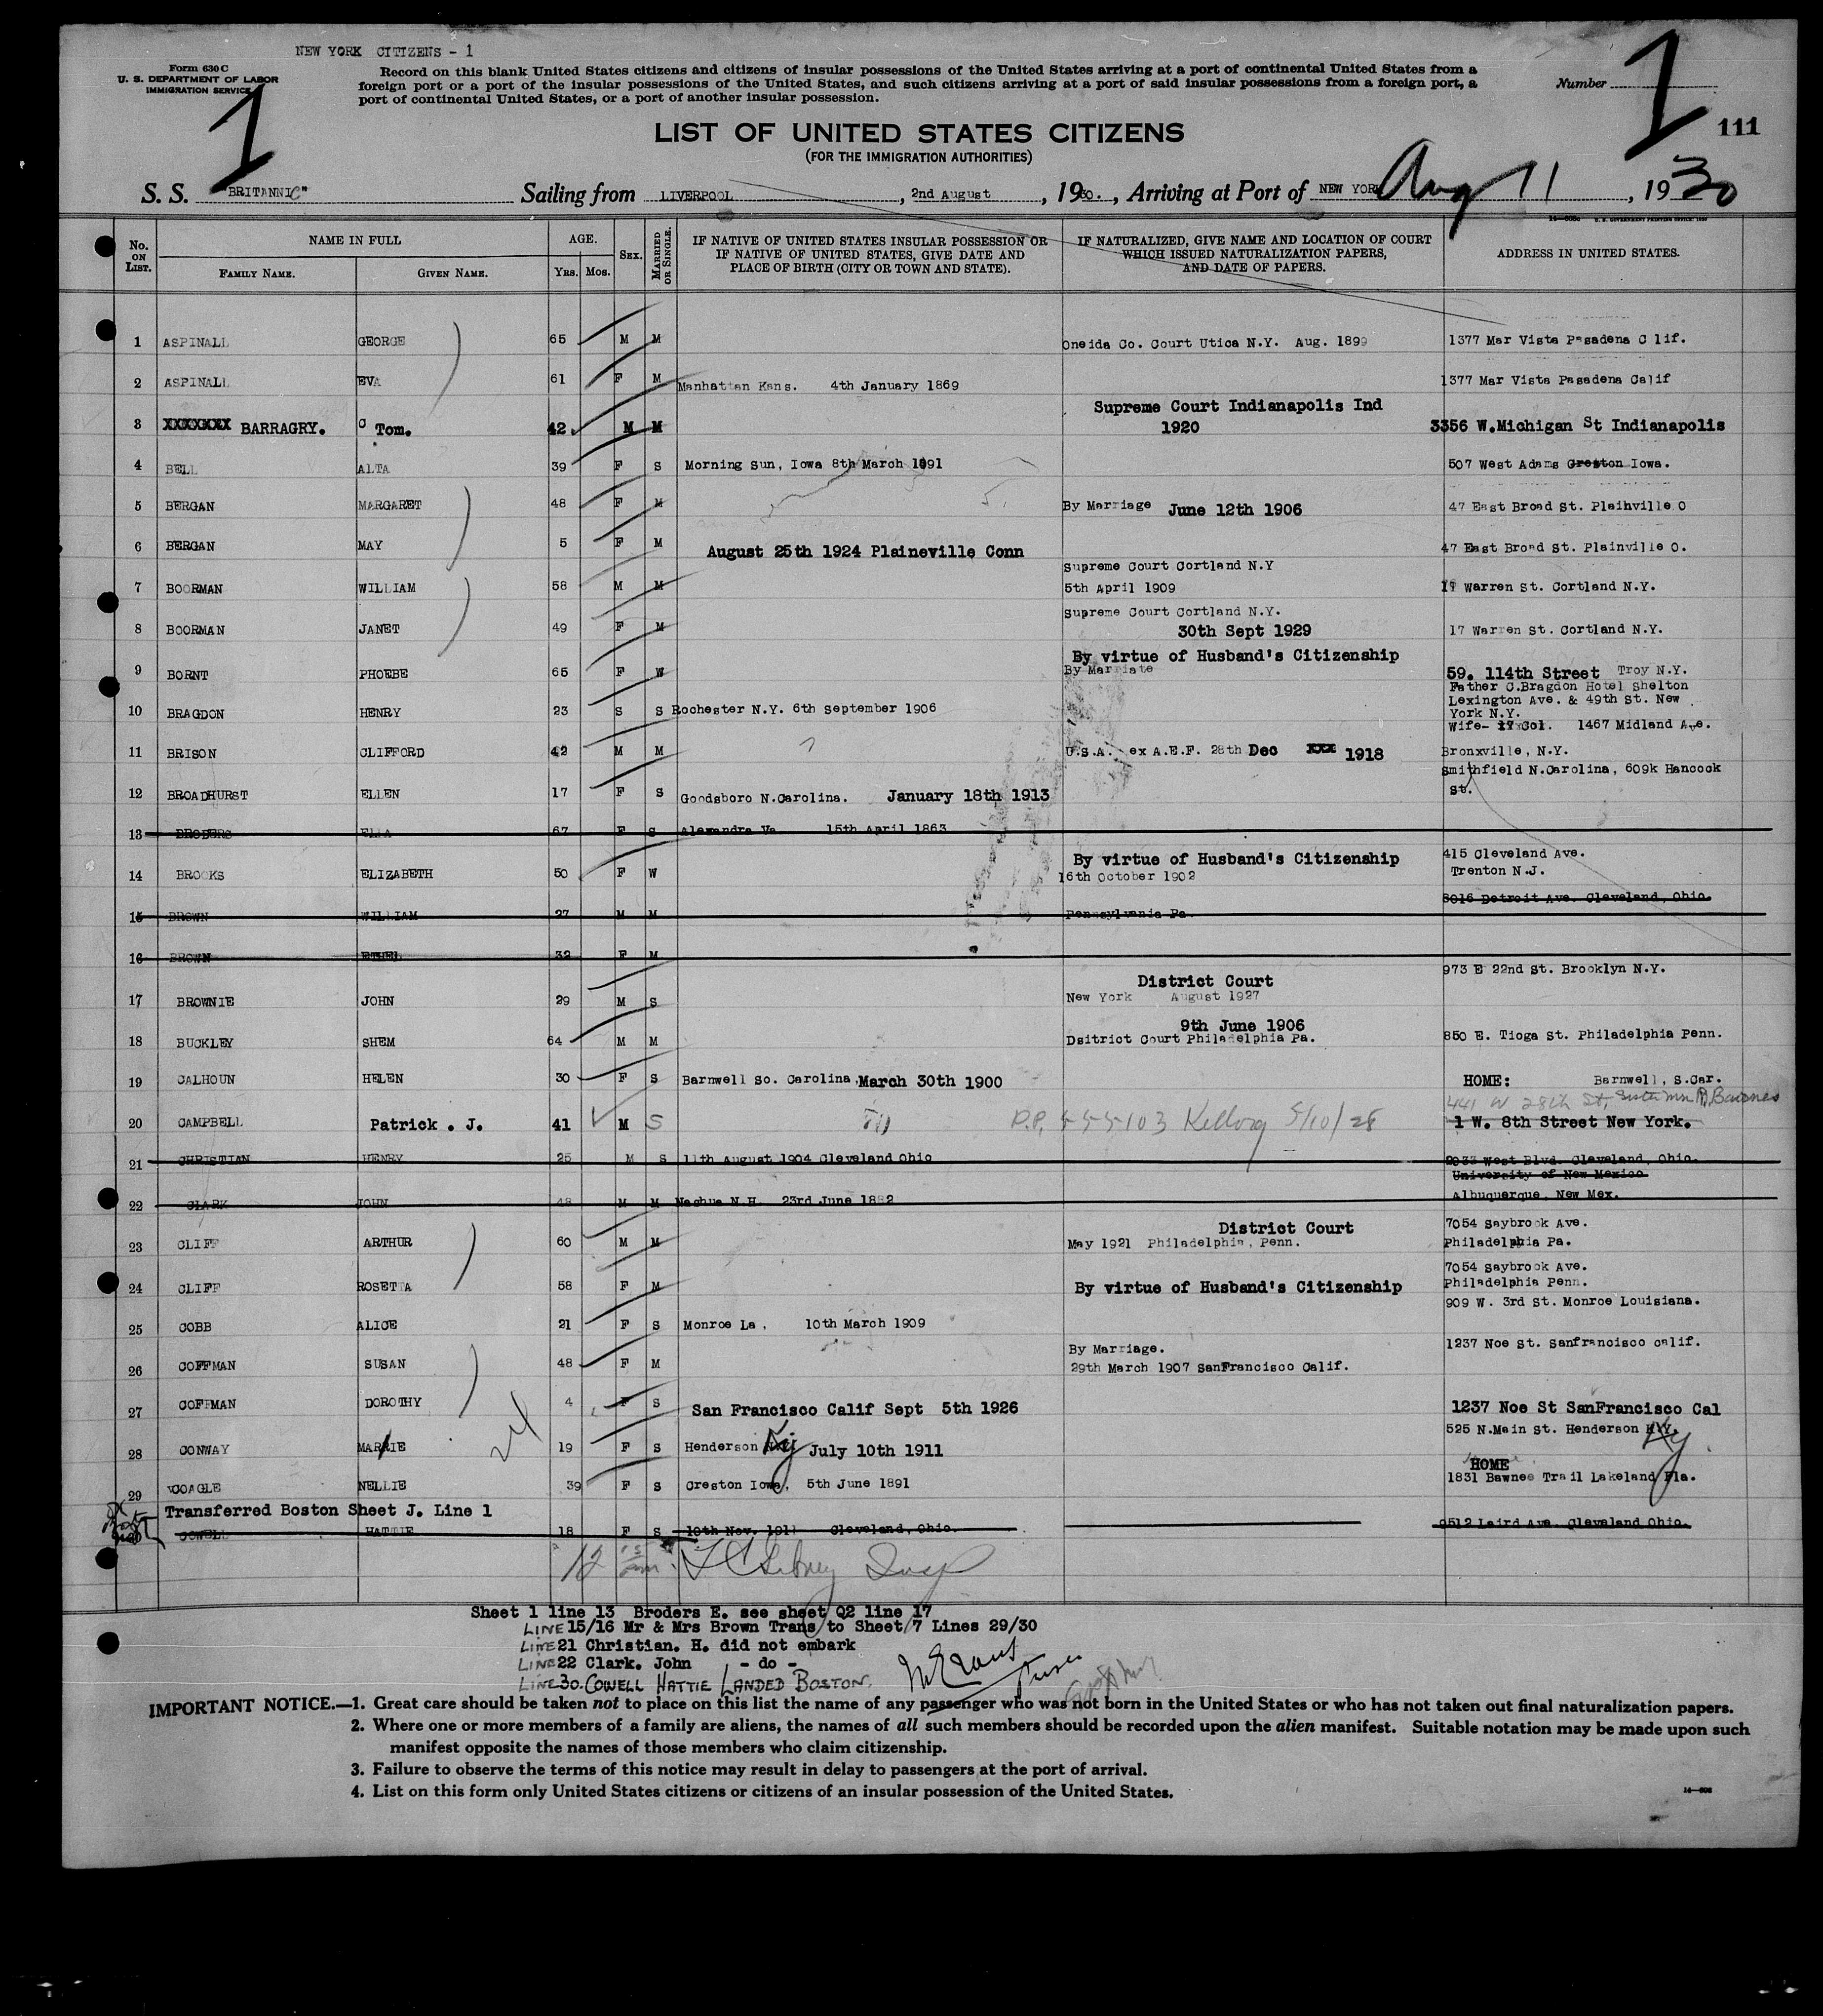 NEW YORK CITIZENS - 1
Form 630 C
U. S. DEPARTMENT OF LABOR
IMMIGRATION SERVICE
Record on this blank United States citizens and citizens of insular possessions of the United States arriving at a port of continental United States from a
foreign port or a port of the insular possessions of the United States, and such citizens arriving at a port of said insular possessions from a foreign port, a
port of continental United States, or a port of another insular possession.
Number 1
1
111
LIST OF UNITED STATES CITIZENS
(FOR THE IMMIGRATION AUTHORITIES)
S. S. "BRITANNIC" Sailing from LIVERPOOL, 2nd August, 1930., Arriving at Port of NEW YORK Aug 11, 1930
No. ON LIST. NAME IN FULL FAMILY NAME. GIVEN NAME. AGE. YRS. MOS. SEX. MARRIED OR SINGLE. IF NATIVE OF UNITED STATES INSULAR POSSESSION OR IF NATIVE OF UNITED STATES, GIVE DATE AND PLACE OF BIRTH (CITY OR TOWN AND STATE). IF NATURALIZED, GIVE NAME AND LOCATION OF COURT WHICH ISSUED NATURALIZATION PAPERS, AND DATE OF PAPERS. ADDRESS IN UNITED STATES.
1 ASPINALL GEORGE 65 M M Oneida Co. Court Utica N.Y. Aug. 1899 1377 Mar Vista Pasadena C lif.
2 ASPINALL EVA 61 F M Manhattan Kans. 4th January 1869 1377 Mar Vista Pasadena Calif
Supreme Court Indianapolis Ind
3 XXXXXXX BARRAGRY. Tom. 42. M M 1920 3356 W.Michigan St Indianapolis
4 BELL ALTA 39 F S Morning Sun, Iowa 8th March 1891 507 West Adams Creston Iowa.
5 BERGAN MARGARET 48 F M By Marriage June 12th 1906 47 East Broad St. Plainville O
6 BERGAN MAY 5 F M August 25th 1924 Plaineville Conn 47 East Broad St. Plainville O.
Supreme Court Cortland N.Y
7 BOORMAN WILLIAM 58 M M 5th April 1909 17 Warren St. Cortland N.Y.
Supreme Court Cortland N.Y.
8 BOORMAN JANET 49 F M 30th Sept 1929 17 Warren St. Cortland N.Y.
By virtue of Husband's Citizenship
9 BORNT PHOEBE 65 F W By Marriate 59. 114th Street Troy N.Y.
Father C.Bragdon Hotel Shelton
Lexington Ave. & 49th St. New
10 BRAGDON HENRY 23 S S Rochester N.Y. 6th September 1906 York N.Y.
Wife- 17 Col. 1467 Midland Ave.
11 BRISON CLIFFORD 42 M M U.S.A. ex A.E.F. 28th Dec XXX 1918 Bronxville, N.Y.
Smithfield N.Carolina, 609k Hancock
12 BROADHURST ELLEN 17 F S Goodsboro N.Carolina. January 18th 1913 St.
13 BRODERS ELLA 67 F S Alexandra Va 15th April 1863
By virtue of Husband's Citizenship 415 Cleveland Ave.
14 BROOKS ELIZABETH 50 F W 16th October 1902 Trenton N.J.
8016 Detroit Ave. Cleveland, Ohio.
15 BROWN WILLIAM 27 M M Pennsylvania Pa.
16 BROWN ETHEL 32 F M
973 E 22nd St. Brooklyn N.Y.
District Court
17 BROWNIE JOHN 29 M S New York August 1927
9th June 1906
18 BUCKLEY SHEM 64 M M Dsitrict Court Philadelphia Pa. 850 E. Tioga St. Philadelphia Penn.
19 CALHOUN HELEN 30 F S Barnwell So. Carolina, March 30th 1900 HOME: Barnwell, S.Car.
441 W 28th St, Sister Mrs P. Barnes
20 CAMPBELL Patrick . J. 41 M S P.P. 555103 Kellogg 5/10/28 1 W. 8th Street New York.
21 CHRISTIAN HENRY 25 M S 11th August 1904 Cleveland Ohio 2033 West Blvd. Cleveland, Ohio.
University of New Mexico
22 CLARK JOHN 48 M M Nashua N.H. 23rd June 1882 Albuquerque, New Mex.
District Court 7054 Saybrook Ave.
23 CLIFF ARTHUR 60 M M May 1921 Philadelphia, Penn. Philadelphia Pa.
7054 Saybrook Ave.
24 CLIFF ROSETTA 58 F M By virtue of Husband's Citizenship Philadelphia Penn.
909 W. 3rd St. Monroe Louisiana.
25 COBB ALICE 21 F S Monroe La, 10th March 1909
By Marriage. 1237 Noe St. Sanfrancisco calif.
26 COFFMAN SUSAN 48 F M 29th March 1907 SanFrancisco Calif.
27 COFFMAN DOROTHY 4 F S San Francisco Calif Sept 5th 1926 1237 Noe St SanFrancisco Cal
525 N.Main St. Henderson Ky
28 CONWAY MARRIE 19 F S Henderson Ky July 10th 1911
HOME
29 COAGLE NELLIE 39 F S Creston Iowa, 5th June 1891 1831 Bawnee Trail Lakeland Fla.
Transferred Boston Sheet J. Line 1
COWELL HATTIE 18 F S 10th Nov. 1911 Cleveland, Ohio. 9512 Laird Ave. Cleveland Ohio.
Sheet 1 line 13 Broders E. see sheet Q2 line 17
LINE 15/16 Mr & Mrs Brown Trans to Sheet 7 Lines 29/30
LINE 21 Christian. H. did not embark
LINE 22 Clark. John - do -
LINE 30. COWELL HATTIE LANDED BOSTON.
IMPORTANT NOTICE.—1. Great care should be taken not to place on this list the name of any passenger who was not born in the United States or who has not taken out final naturalization papers.
2. Where one or more members of a family are aliens, the names of all such members should be recorded upon the alien manifest. Suitable notation may be made upon such
manifest opposite the names of those members who claim citizenship.
3. Failure to observe the terms of this notice may result in delay to passengers at the port of arrival.
4. List on this form only United States citizens or citizens of an insular possession of the United States.